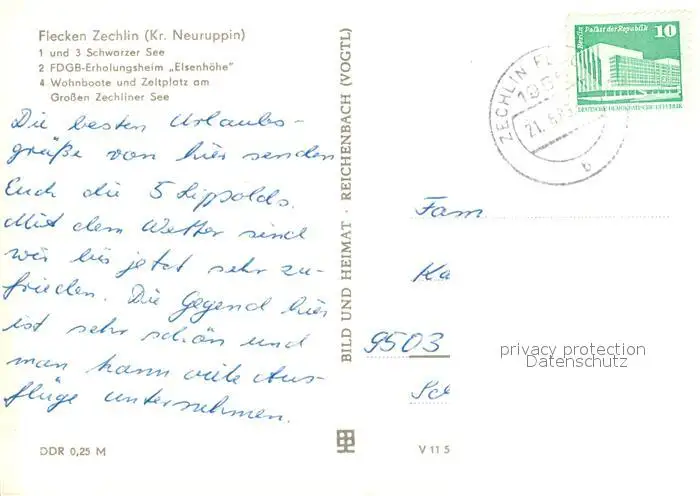 Flecken Zechlin (Kr. Neuruppin)
1 und 3 Schwarzer See
2 FDGB-Erholungsheim „Elsenhöhe"
4 Wohnboote und Zeltplatz am
Großen Zechliner See
Die besten Urlaubs-
grüße von hier senden
Euch die 5 Lippolds.
Mit dem Wetter sind
wir bis jetzt sehr zu-
frieden. Die Gegend hier
ist sehr schön und
man kann viele Aus-
flüge unternehmen.
DDR 0,25 M
BILD UND HEIMAT · REICHENBACH (VOGTL)
V 11 5
ZECHLIN FL
21.
b
Berlin Palast der Republik 10
DEUTSCHE DEMOKRATISCHE REPUBLIK
Fam
Ka
9503
Sc
privacy protection
Datenschutz